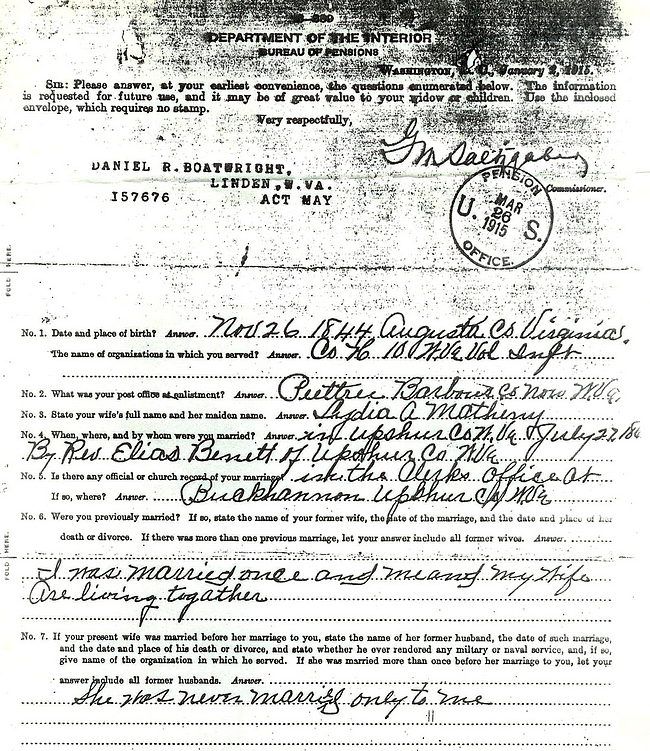 DEPARTMENT OF THE INTERIOR
BUREAU OF PENSIONS
WASHINGTON, D. C., January 2, 1915.
SIR: Please answer, at your earliest convenience, the questions enumerated below. The information
is requested for future use, and it may be of great value to your widow or children. Use the inclosed
envelope, which requires no stamp.
Very respectfully,
Commissioner.
DANIEL R. BOATWRIGHT,
LINDEN, W. VA.
157676 ACT MAY
PENSION
U. S.
MAR
26
1915
OFFICE.
FOLD HERE.
No. 1. Date and place of birth? Answer. Nov 26 1844 Augusta Co Virginia.
The name of organizations in which you served? Answer. Co H 10 W Va Vol Inft
No. 2. What was your post office at enlistment? Answer. Barbour Co now W. Va.
No. 3. State your wife's full name and her maiden name. Answer. Lydia A Matheny
No. 4. When, where, and by whom were you married? Answer. in Upshur Co W. Va July 27 186
By Rev Elias Benett of Upshur Co W Va
No. 5. Is there any official or church record of your marriage? in the Clerks office at
If so, where? Answer. Buckhannon Upshur Co W Va
No. 6. Were you previously married? If so, state the name of your former wife, the date of the marriage, and the date and place of her
death or divorce. If there was more than one previous marriage, let your answer include all former wives. Answer.
FOLD HERE.
I was married once and me and my wife
Are living togather
No. 7. If your present wife was married before her marriage to you, state the name of her former husband, the date of such marriage,
and the date and place of his death or divorce, and state whether he ever rendered any military or naval service, and, if so,
give name of the organization in which he served. If she was married more than once before her marriage to you, let your
answer include all former husbands. Answer.
She was never married only to me